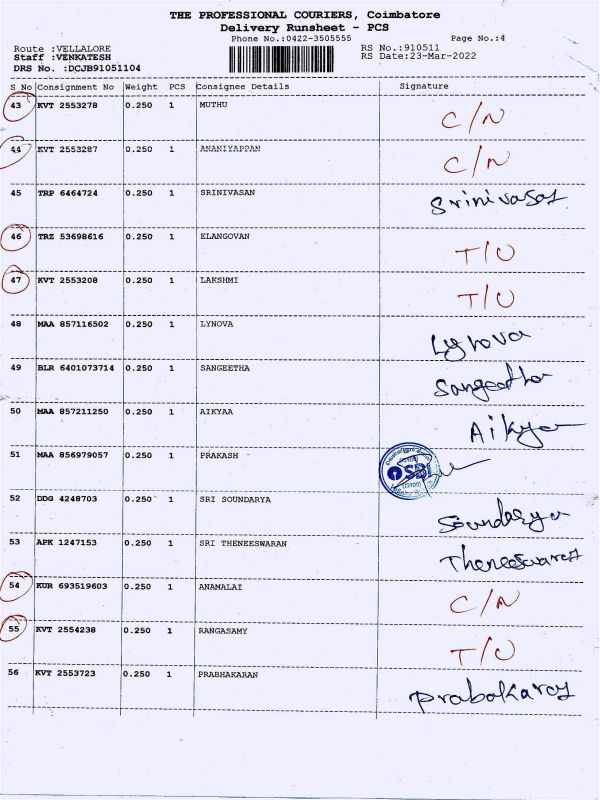 THE PROFESSIONAL COURIERS, Coimbatore
Delivery Runsheet - PCS
Phone No.:0422-3505555 Page No.:4
Route :VELLALORE RS No.:910511
Staff :VENKATESH RS Date:23-Mar-2022
DRS No. :DCJB91051104
S No Consignment No Weight PCS Consignee Details Signature
43 KVT 2553278 0.250 1 MUTHU C/N
44 KVT 2553287 0.250 1 ANANIYAPPAN C/N
45 TRP 6464724 0.250 1 SRINIVASAN Srinivasan
46 TRZ 53698616 0.250 1 ELANGOVAN T/U
47 KVT 2553208 0.250 1 LAKSHMI T/U
48 MAA 857116502 0.250 1 LYNOVA Lynova
49 BLR 6401073714 0.250 1 SANGEETHA Sangeetha
50 MAA 857211250 0.250 1 AIKYAA Aikya
51 MAA 856979057 0.250 1 PRAKASH SBI
52 DDG 4248703 0.250 1 SRI SOUNDARYA Soundarya
53 APK 1247153 0.250 1 SRI THENEESWARAN Theneeswaran
54 KUR 693519603 0.250 1 ANAMALAI C/N
55 KVT 2554238 0.250 1 RANGASAMY T/U
56 KVT 2553723 0.250 1 PRABHAKARAN Prabakaran